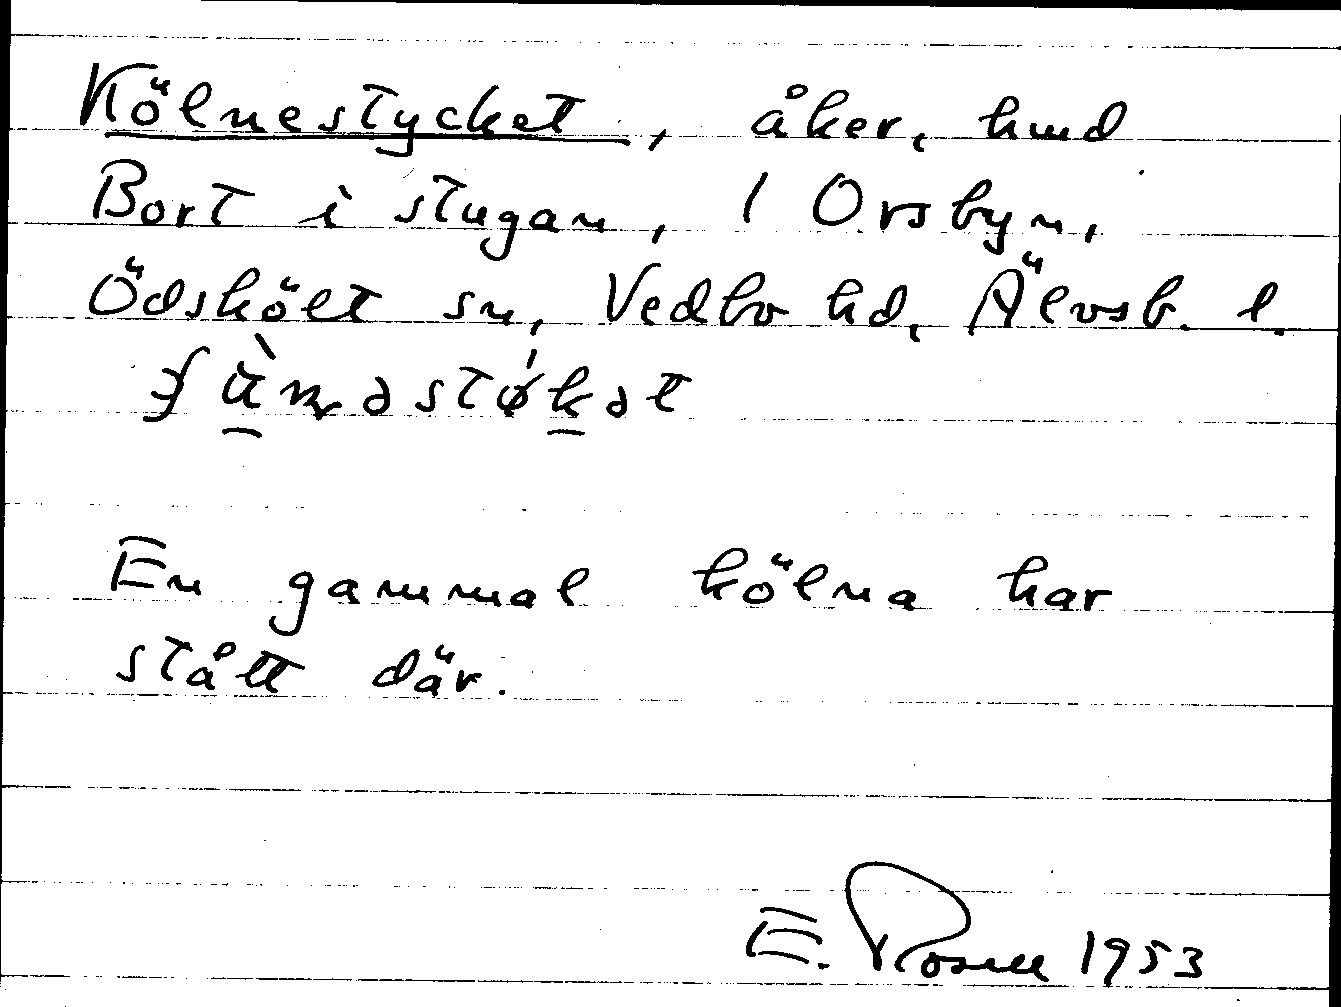 Kölnestycket, åker, hmd
Bort i stugan, 1 Orsbyn,
Ödskölt sn, Vedbo hd, Älvsb. l.
En gammal kölna har
stått där.
E. Rosell 1953